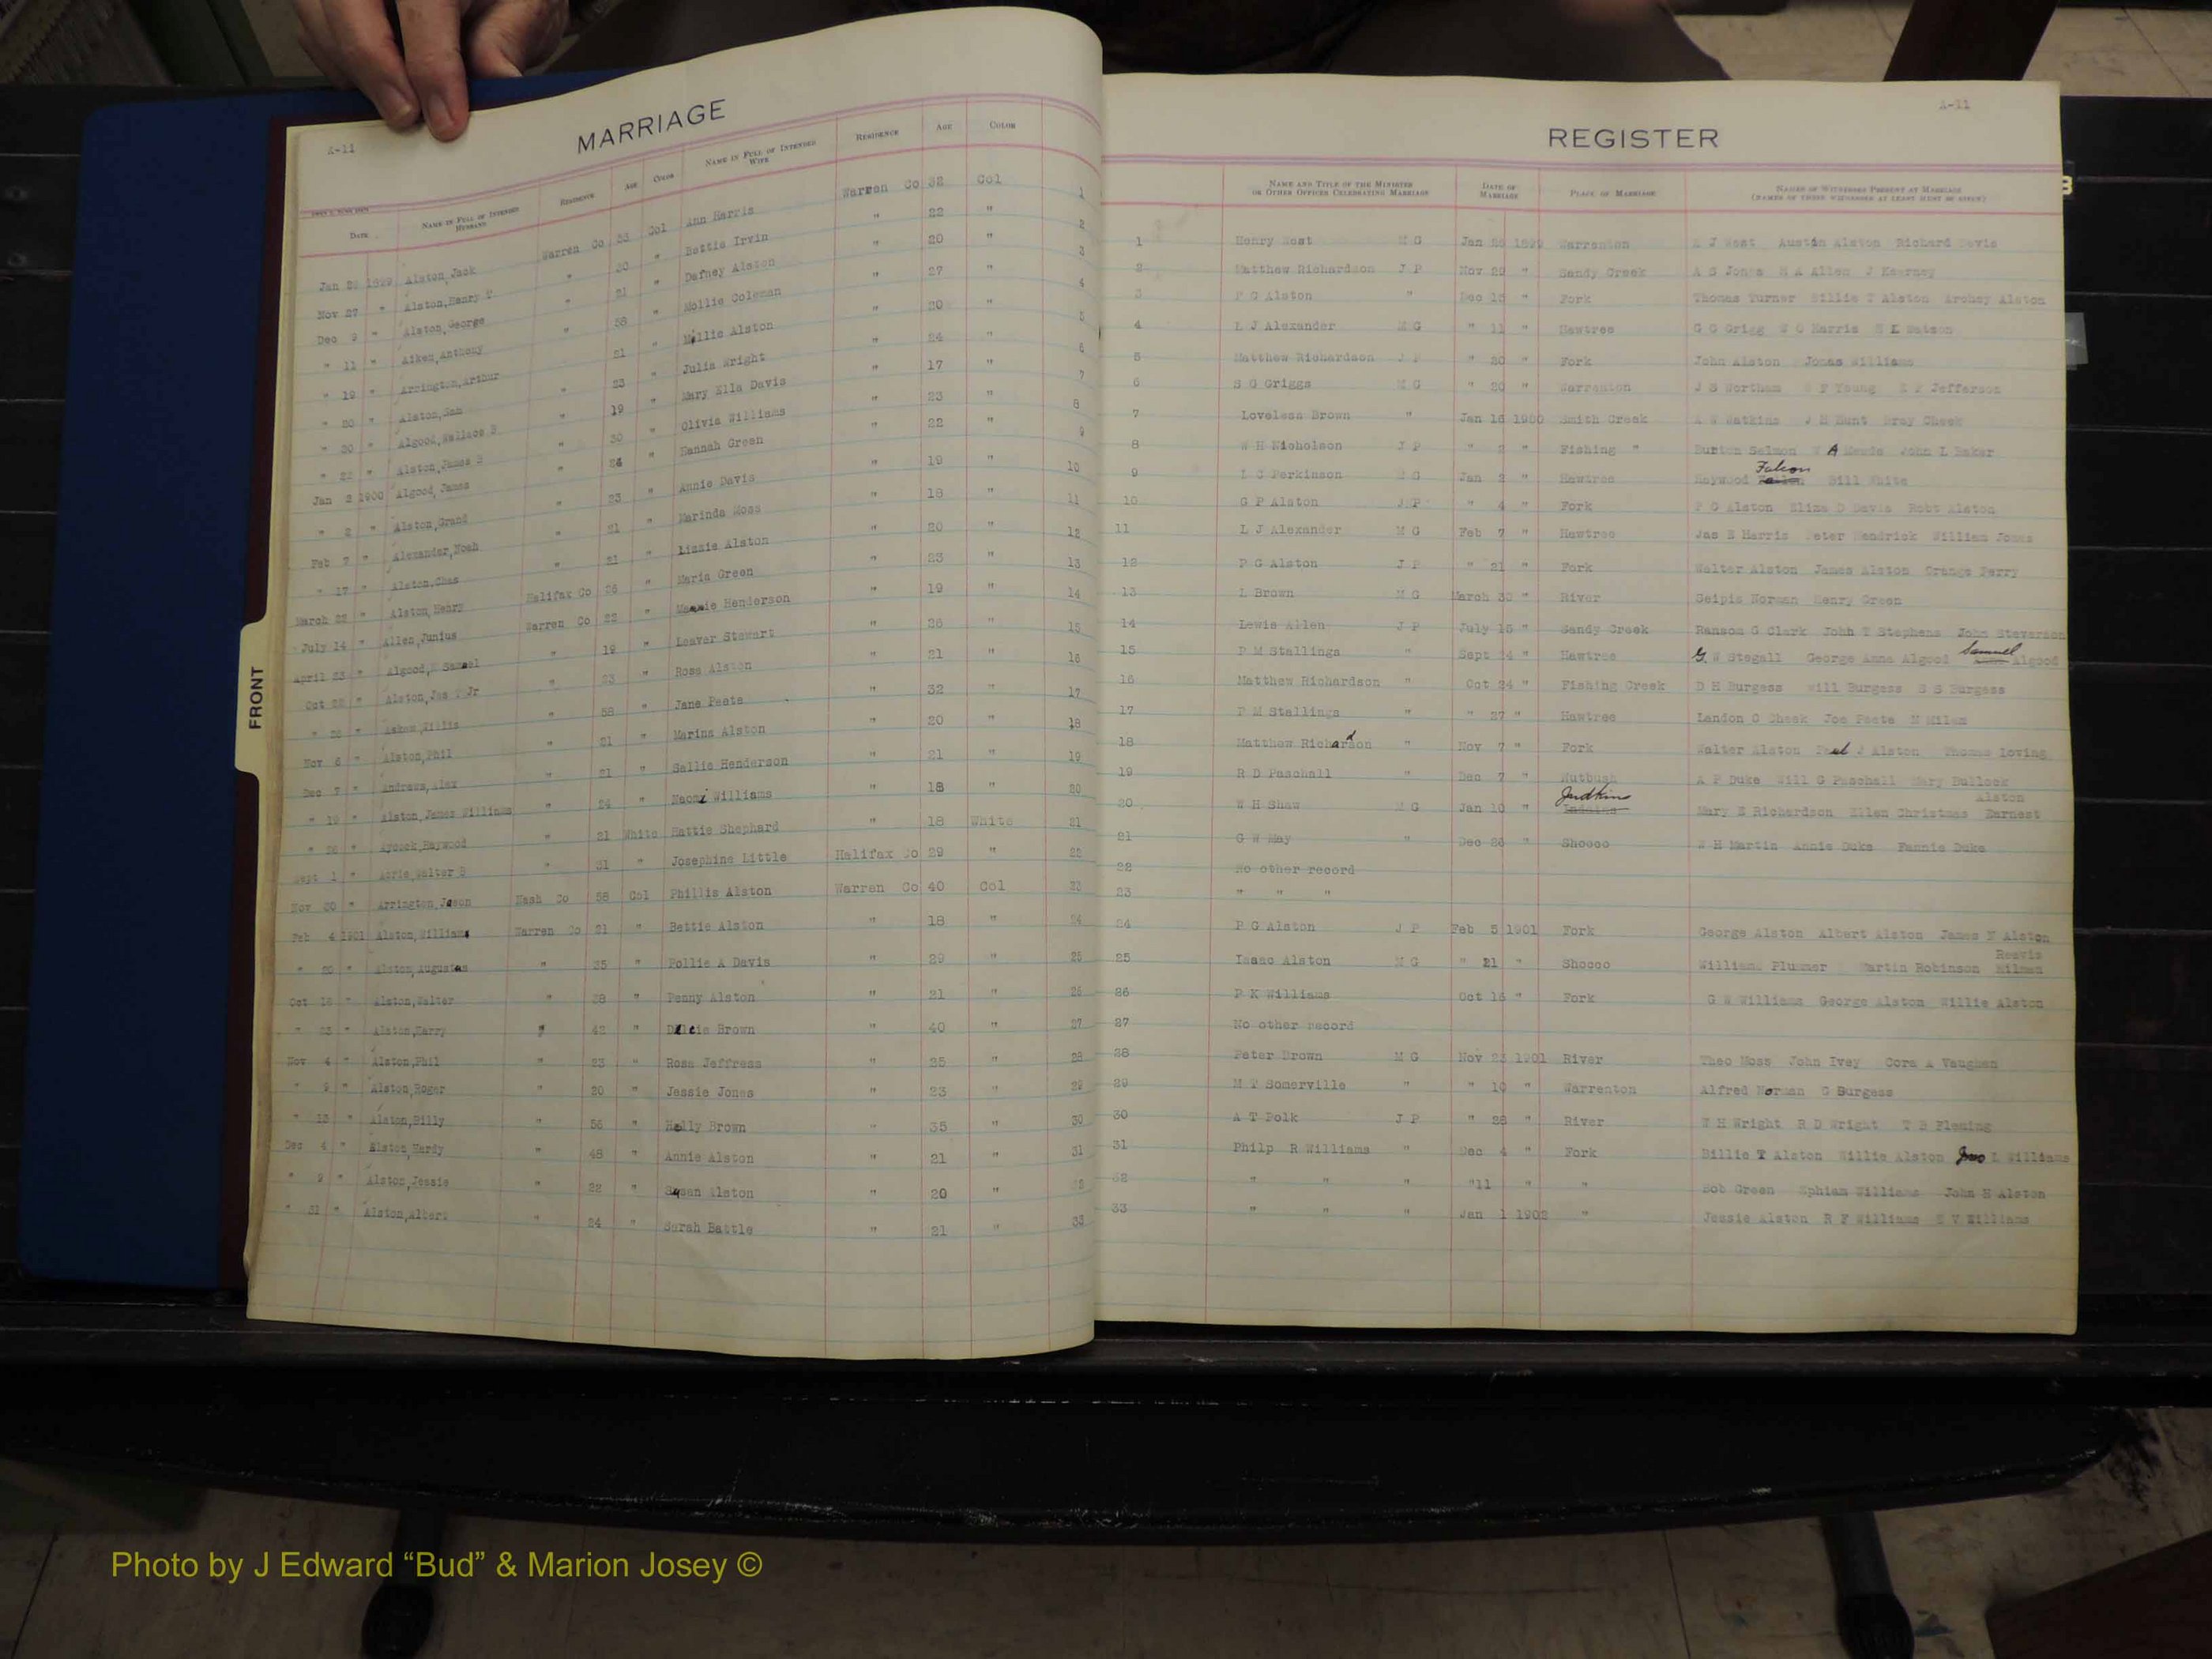 A-11
MARRIAGE
DATE NAME IN FULL OF INTENDED HUSBAND RESIDENCE AGE COLOR NAME IN FULL OF INTENDED WIFE RESIDENCE AGE COLOR
Jan 28 1899 Alston, Jack Warren Co 53 Col Ann Harris Warren Co 32 Col 1
Nov 27 " Alston, Henry P " 20 " Bettie Irvin " 22 " 2
Dec 9 " Alston, George " 21 " Dafney Alston " 20 " 3
" 11 " Aiken, Anthony " 58 " Mollie Coleman " 27 " 4
" 19 " Arrington, Arthur 21 " Millie Alston " 20 " 5
" 20 " Alston, Sam " 23 " Julia Wright " 24 " 6
" 20 " Algood, Wallace B " 19 " Mary Ella Davis " 17 " 7
" 22 " Alston, James B " 30 " Olivia Williams " 23 " 8
Jan 2 1900 Algood, James " 24 " Hannah Green " 22 " 9
" 2 " Alston, Grand " 23 " Annie Davis " 19 " 10
Feb 7 " Alexander, Noah " 21 " Marinda Moss " 18 " 11
" 17 " Alston, Chas " 21 " Lizzie Alston " 20 " 12
March 22 " Alston, Henry Halifax Co 26 " Maria Green " 23 " 13
July 14 " Allen, Junius Warren Co 22 " Mamie Henderson " 19 " 14
April 23 " Algood, Samuel " 19 " Leaver Stewart " 26 " 15
Oct 22 " Alston, Jas Jr " 23 " Rosa Alston " 21 " 16
" 26 " Askew, Willis " 58 " Jane Peete " 32 " 17
Nov 6 " Alston, Phil " 21 " Marina Alston " 20 " 18
Dec 7 " Andrews, Alex " 21 " Sallie Henderson " 21 " 19
" 19 " Alston, James Williams " 24 " Naomi Williams " 18 " 20
" 26 " Aycock, Haywood " 21 White Hattie Shephard " 18 White 21
Sept 1 " Walter B " 31 " Josephine Little Halifax Co 29 " 22
Nov 20 " Arrington, Jason Nash Co 58 Col Phillis Alston Warren Co 40 Col 23
Feb 4 1901 Alston, Williams Warren Co 21 " Bettie Alston " 18 " 24
" 20 " Alston, Augustas " 35 " Pollie A Davis " 29 " 25
Oct 16 " Alston, Walter " 28 " Penny Alston " 21 " 26
" 23 " Alston, Harry " 42 " Dilcie Brown " 40 " 27
Nov 4 " Alston, Phil " 33 " Rosa Jeffress " 25 " 28
" 9 " Alston, Roger " 20 " Jessie Jones " 23 " 29
" 13 " Alston, Billy " 56 " Holly Brown " 35 " 30
Dec 4 " Alston, Hardy " 48 " Annie Alston " 21 " 31
" 9 " Alston, Jessie " 22 " Susan Alston " 20 " 32
" 31 " Alston, Albert " 24 " Sarah Battle " 21 " 33
A-11
REGISTER
NAME AND TITLE OF THE MINISTER OR OTHER OFFICER CELEBRATING MARRIAGE DATE OF MARRIAGE PLACE OF MARRIAGE NAMES OF WITNESSES PRESENT AT MARRIAGE (NAMES OF THREE WITNESSES AT LEAST MUST BE GIVEN)
1 Henry West M G Jan 28 1899 Warrenton J West Austin Alston Richard Davis
2 Matthew Richardson J P Nov 29 " Sandy Creek A S Jones H A Allen J Kearney
3 P G Alston " Dec 15 " Fork Thomas Turner Billie T Alston Archey Alston
4 L J Alexander M G " 11 " Hawtree G G Grigg W O Harris Watson
5 Matthew Richardson J P " 20 " Fork John Alston Jonas Williams
6 S G Griggs M G " 20 " Warrenton J S Wortham F Young Jefferson
7 Loveless Brown " Jan 16 1900 Smith Creek A W Watkins J H Hunt Bray Cheek
8 W H Nicholson J P " 2 " Fishing " Burton Salmon A Meade John L Baker
9 L C Perkinson M G Jan 2 " Hawtree Haywood Falcon Bill White
10 G P Alston J P " 4 " Fork P G Alston Eliza D Davis Robt Alston
11 L J Alexander M G Feb 7 " Hawtree Jas E Harris Peter Hendrick William Jones
12 P G Alston J P " 21 " Fork Walter Alston James Alston Orange Perry
13 L Brown M G March 30 " River Geipis Norman Henry Green
14 Lewis Allen J P July 15 " Sandy Creek Ransom G Clark John T Stephens John Steverson
15 P M Stallings " Sept 24 " Hawtree G W Stegall George Anna Algood Samuel Algood
16 Matthew Richardson " Oct 24 " Fishing Creek D H Burgess Will Burgess S S Burgess
17 P M Stallings " " 27 " Hawtree Landon O Cheek Joe Peete M Milam
18 Matthew Richardson " Nov 7 " Fork Walter Alston Paul J Alston Thomas Loving
19 R D Paschall " Dec 7 " Nutbush A P Duke Will G Paschall Mary Bullock
20 W H Shaw M G Jan 10 " Judkins Mary E Richardson Ellen Christmas Earnest Alston
21 G W May " Dec 26 " Shocco W H Martin Annie Duke Fannie Duke
22 No other record
23 " " "
24 P G Alston J P Feb 5 1901 Fork George Alston Albert Alston James N Alston
25 Isaac Alston M G " 21 " Shocco William Plummer Martin Robinson Reavis Hilman
26 P K Williams Oct 16 " Fork G W Williams George Alston Willie Alston
27 No other record
28 Peter Brown M G Nov 23 1901 River Theo Moss John Ivey Cora A Vaughan
29 M T Somerville " " 10 " Warrenton Alfred Norman G Burgess
30 A T Polk J P " 28 " River W H Wright R D Wright T B Fleming
31 Philp R Williams " Dec 4 " Fork Billie T Alston Willie Alston Jno L Williams
32 " " " "11 " " Bob Green Ephiam Williams John H Alston
33 " " " Jan 1 1902 " Jessie Alston R F Williams V Williams
FRONT
Photo by J Edward “Bud” & Marion Josey ©